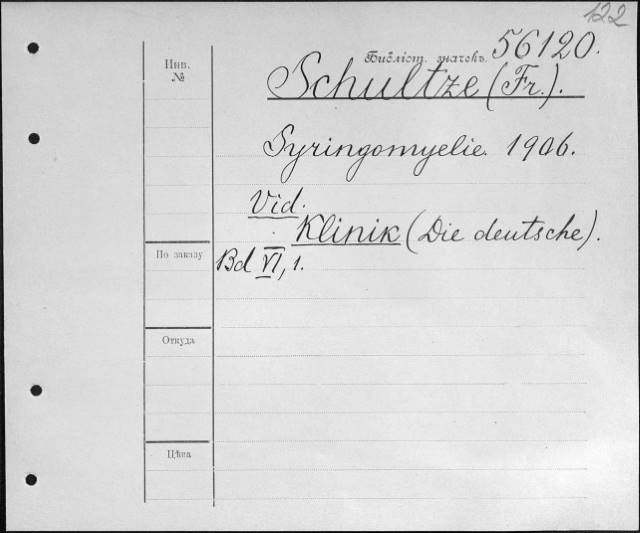 122
Библіот. значекъ. 56120.
Инв.
№
Schultze (Fr.).
Syringomyelie. 1906.
Vid.
Klinik (Die deutsche).
По заказу
Bd VI, 1.
Откуда
Цѣна